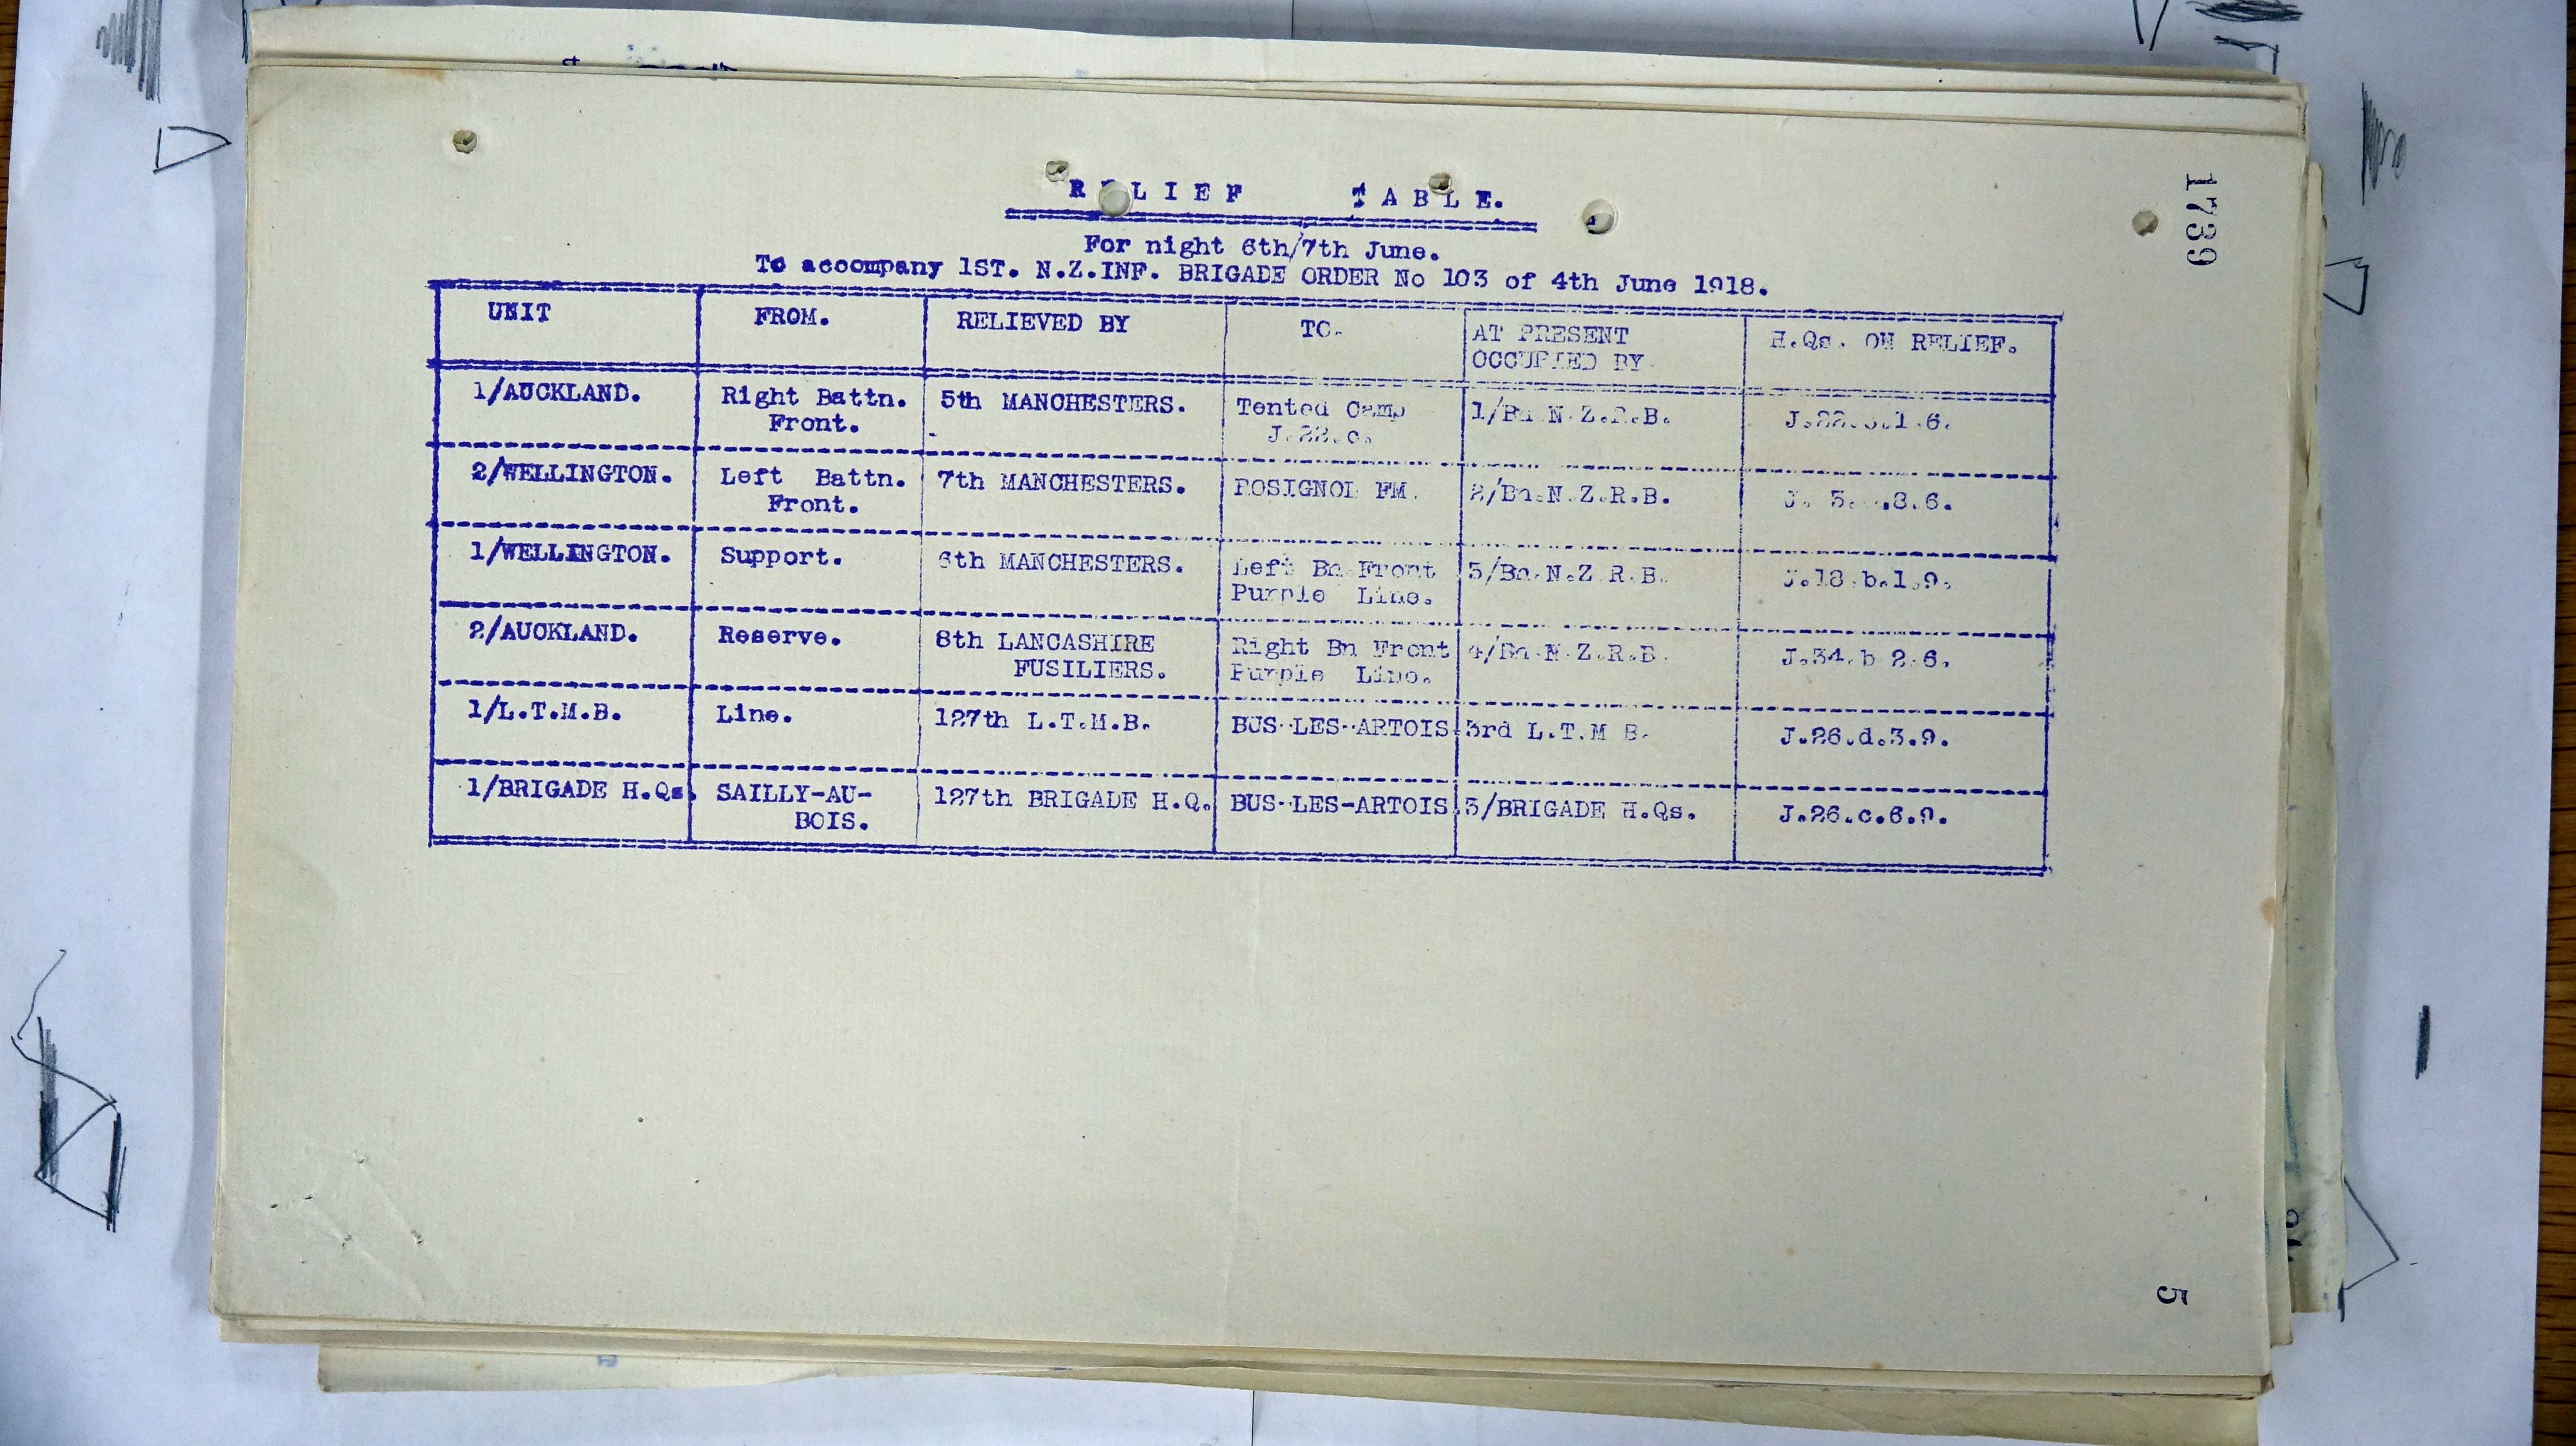 1739
RELIEF TABLE.
For night 6th/7th June.
To accompany 1ST. N.Z.INF. BRIGADE ORDER No 103 of 4th June 1918.
UNIT FROM. RELIEVED BY TO. AT PRESENT H.Qs. ON RELIEF.
OCCUPIED BY.
1/AUCKLAND. Right Battn. 5th MANCHESTERS. Tented Camp 1/Bn.N.Z.R.B.
Front. J.22.c.
2/WELLINGTON. Left Battn. 7th MANCHESTERS. ROSIGNOL FM. 2/Bn.N.Z.R.B.
Front.
1/WELLINGTON. Support. 6th MANCHESTERS. Left Bn Front 3/Bn.N.Z.R.B. J.18.b.1.9.
Purple Line.
2/AUCKLAND. Reserve. 8th LANCASHIRE Right Bn Front 4/Bn.N.Z.R.B. J.34.b.2.6.
FUSILIERS. Purple Line.
1/L.T.M.B. Line. 127th L.T.M.B. BUS-LES-ARTOIS 3rd L.T.M.B. J.26.d.3.9.
1/BRIGADE H.Qs. SAILLY-AU- 127th BRIGADE H.Q. BUS-LES-ARTOIS 3/BRIGADE H.Qs. J.26.c.6.9.
BOIS.
5